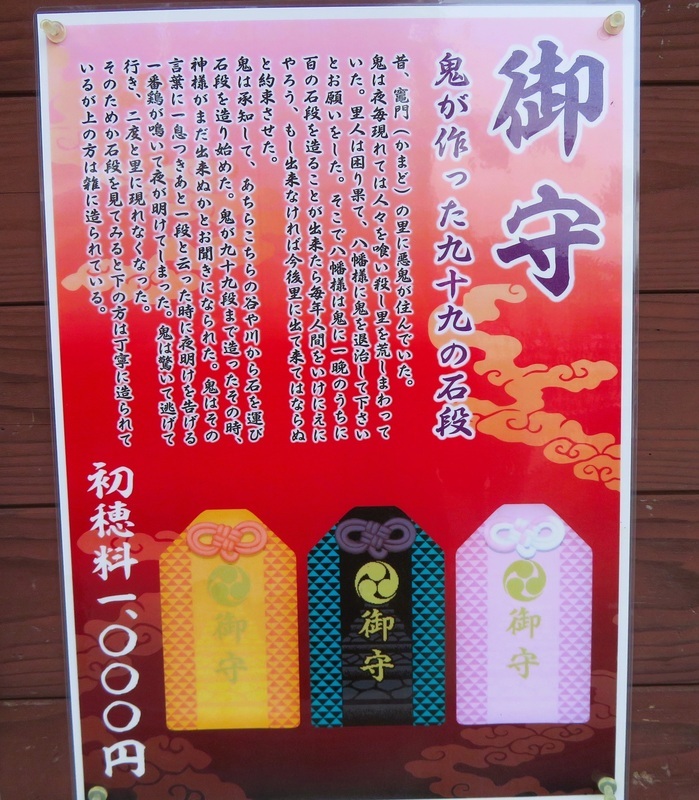 御守
鬼が作った九十九の石段
昔、竈門（かまど）の里に悪鬼が住んでいた。
鬼は夜毎現れては人々を喰い殺し里を荒しまわって
いた。里人は困り果て、八幡様に鬼を退治して下さい
とお願いをした。そこで八幡様は鬼に一晩のうちに
百の石段を造ることが出来たら毎年人間をいけにえに
やろう、もし出来なければ今後里に出て来てはならぬ
と約束させた。
鬼は承知して、あちらこちらの谷や川から石を運び
石段を造り始めた。鬼が九十九段まで造ったその時、
神様がまだ出来ぬかとお聞きになられた。鬼はその
言葉に一息つきあと一段と云った時に夜明けを告げる
一番鶏が鳴いて夜が明けてしまった。鬼は驚いて逃げて
行き、二度と里に現れなくなった。
そのためか石段を見てみると下の方は丁寧に造られて
いるが上の方は雑に造られている。
初穂料 一、〇〇〇円
御守
御守
御守